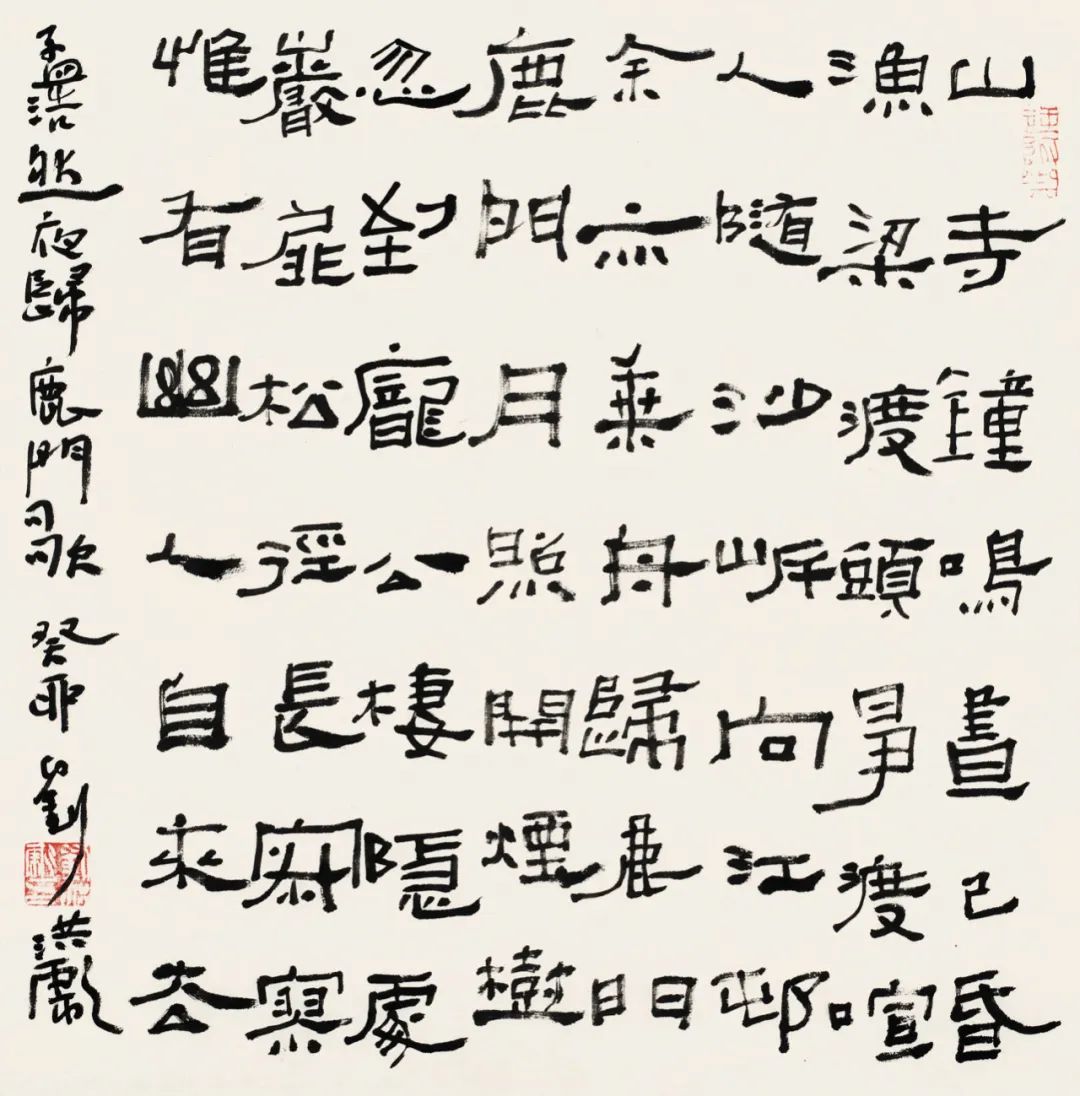 山寺鐘鳴晝已昏
漁梁渡頭爭渡喧
人隨沙岸向江邨
余亦乘舟歸鹿門
鹿門月照開煙樹
忽到龐公棲隱處
巖扉松徑長寂寥
惟有幽人自來去
孟浩然夜歸鹿門歌 癸卯 劉洪彪